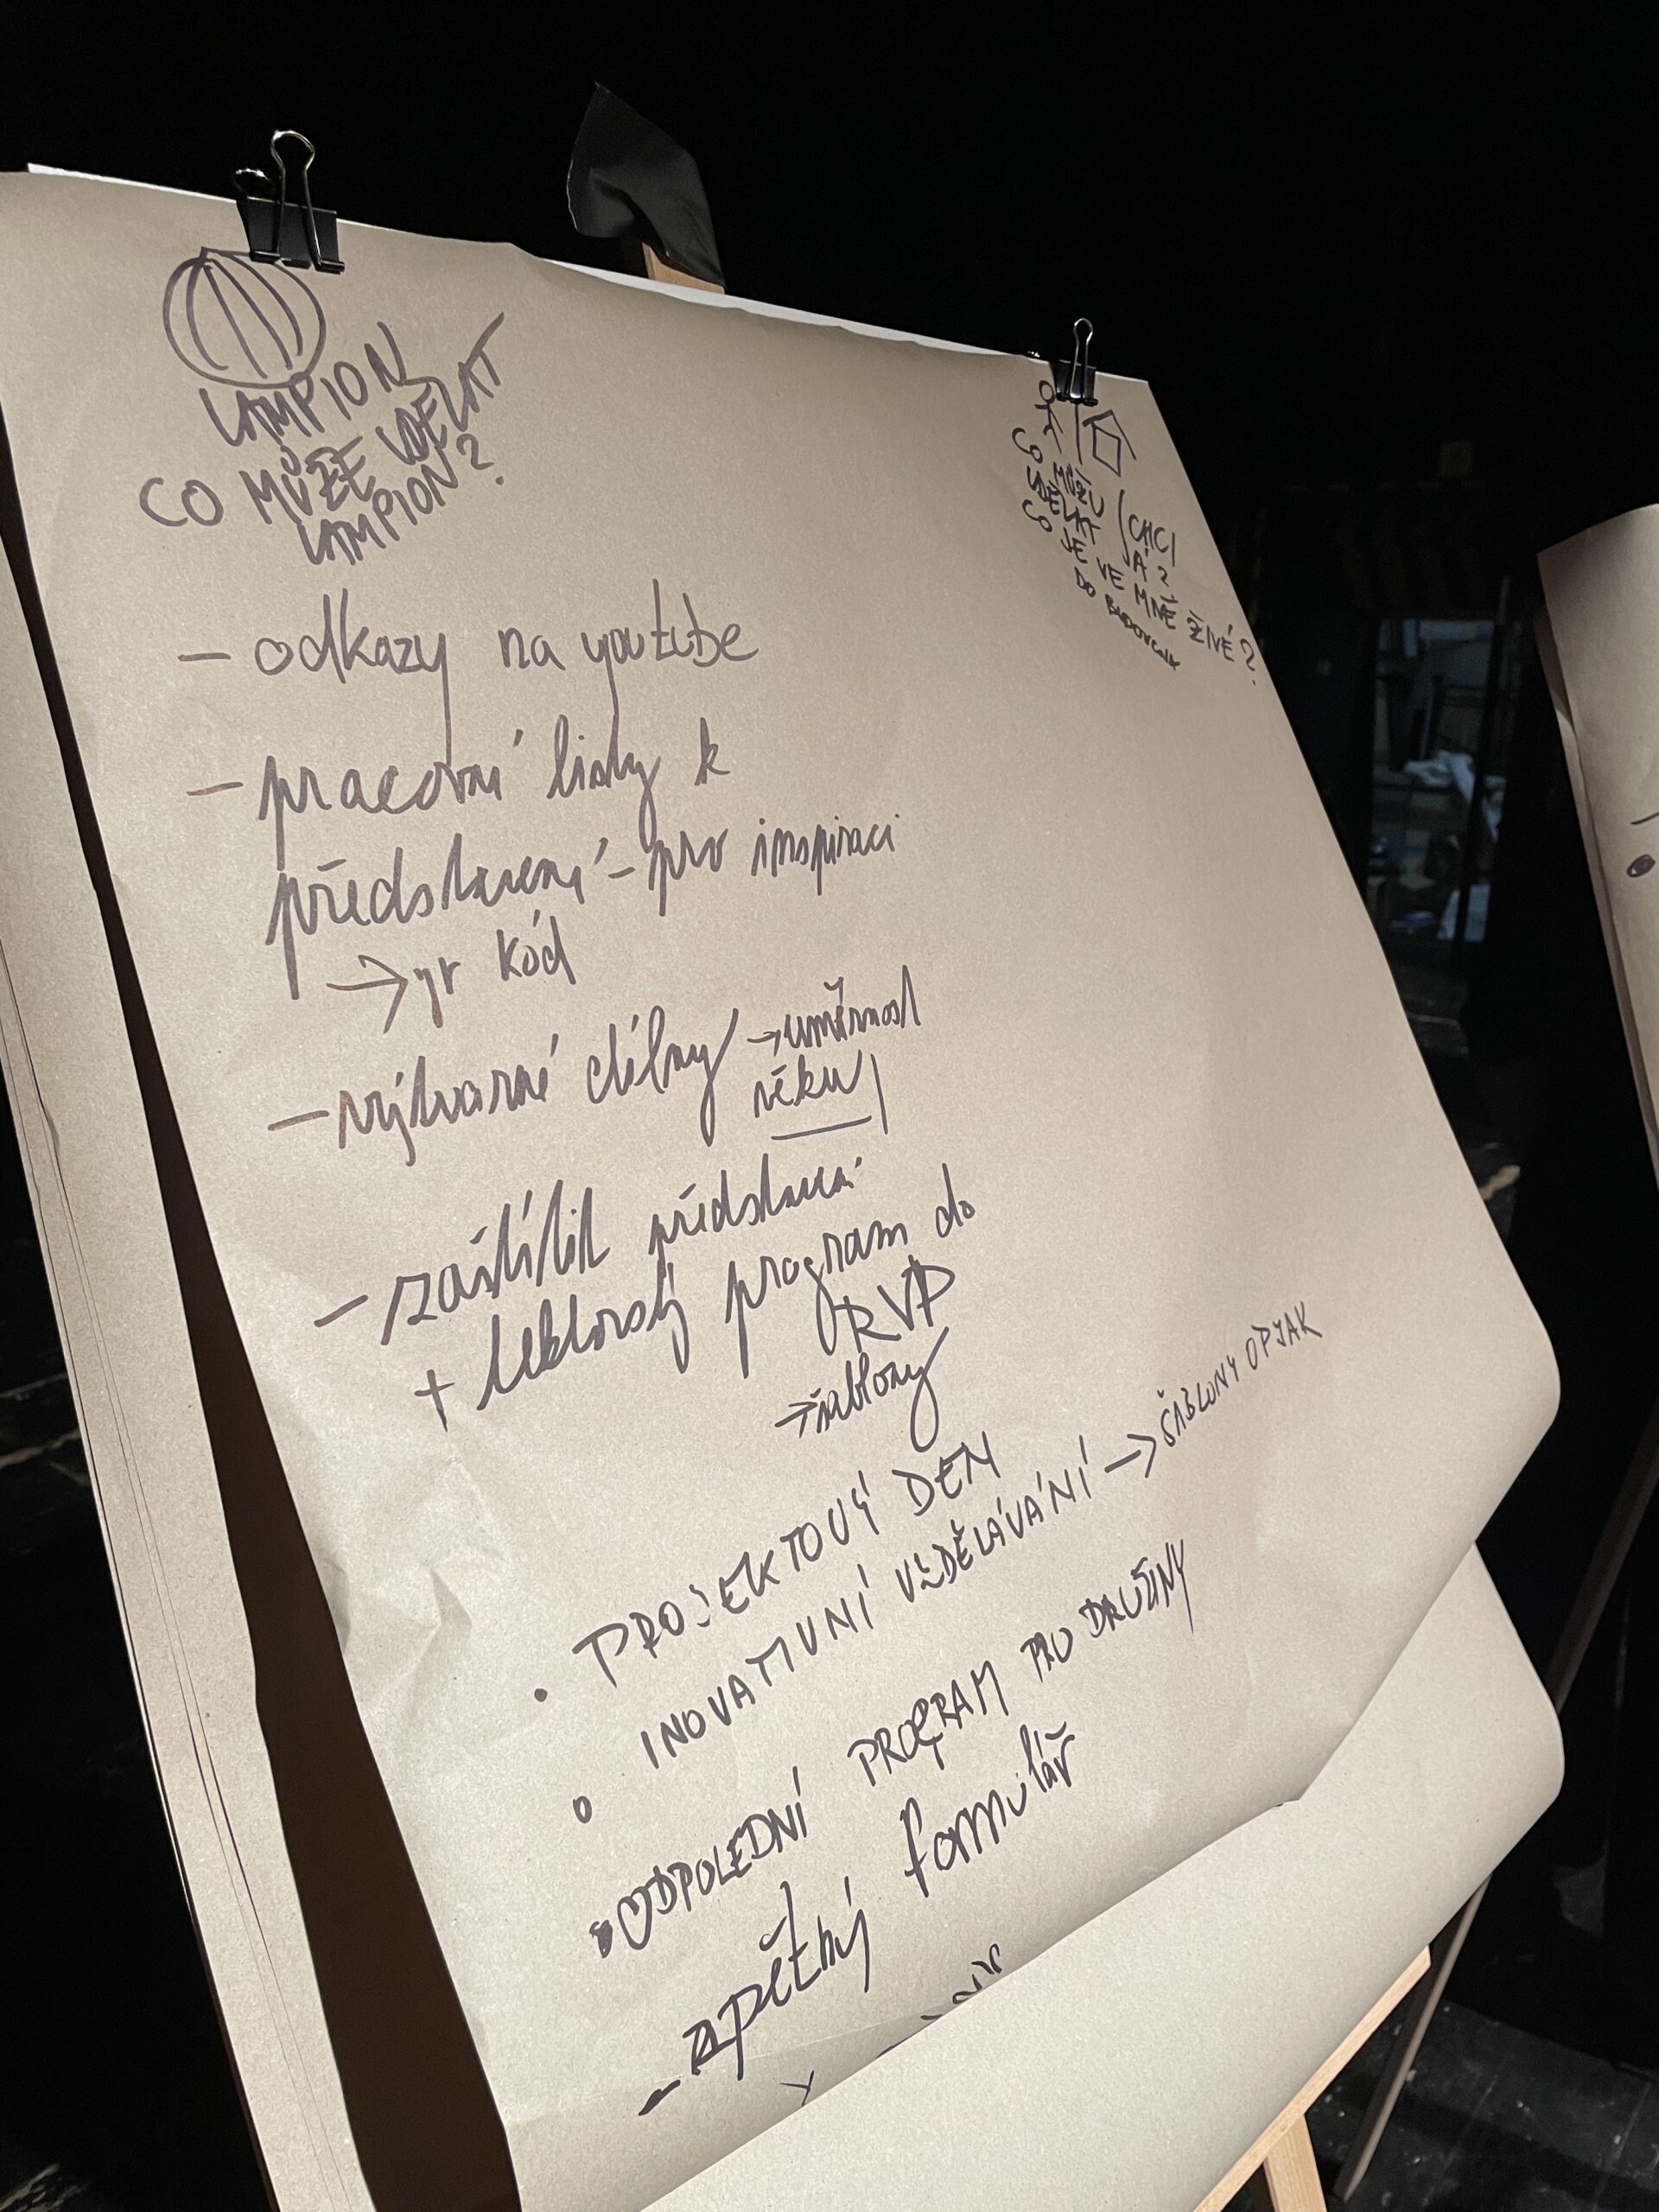 LAMPION
CO MŮŽE UDĚLAT
LAMPION?
CO MŮŽU / CHCI
UDĚLAT JÁ?
CO JE VE MNĚ ŽIVÉ?
DO
– odkazy na youtube
– pracovní listy k
představení – pro inspiraci
→ qr kód
– výtvarné dílny → úměrnost
věku
– zaštítit představení
+ lektorský program do
RVP
→ šablony
• PROJEKTOVÝ DEN
INOVATIVNÍ VZDĚLÁVÁNÍ → ŠABLONY OPJAK
• ODPOLEDNÍ PROGRAM PRO DRUŽINY
– zpětný formulář